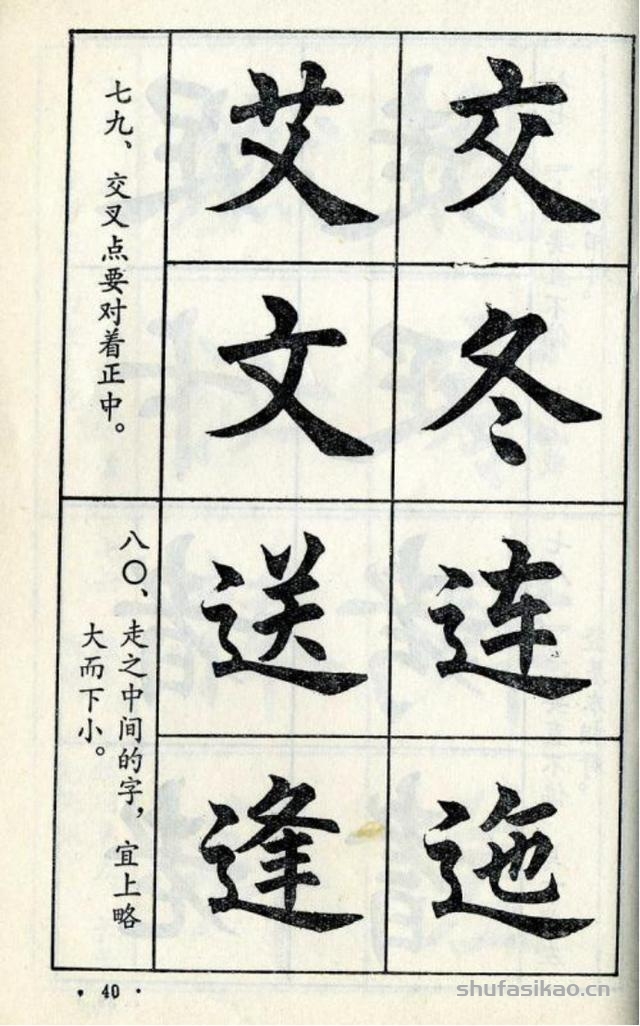 交
冬
艾
文
七九、交叉点要对着正中。
连
迤
送
逢
八〇、走之中间的字，宜上略
大而下小。
· 40 ·
shufasikao.cn